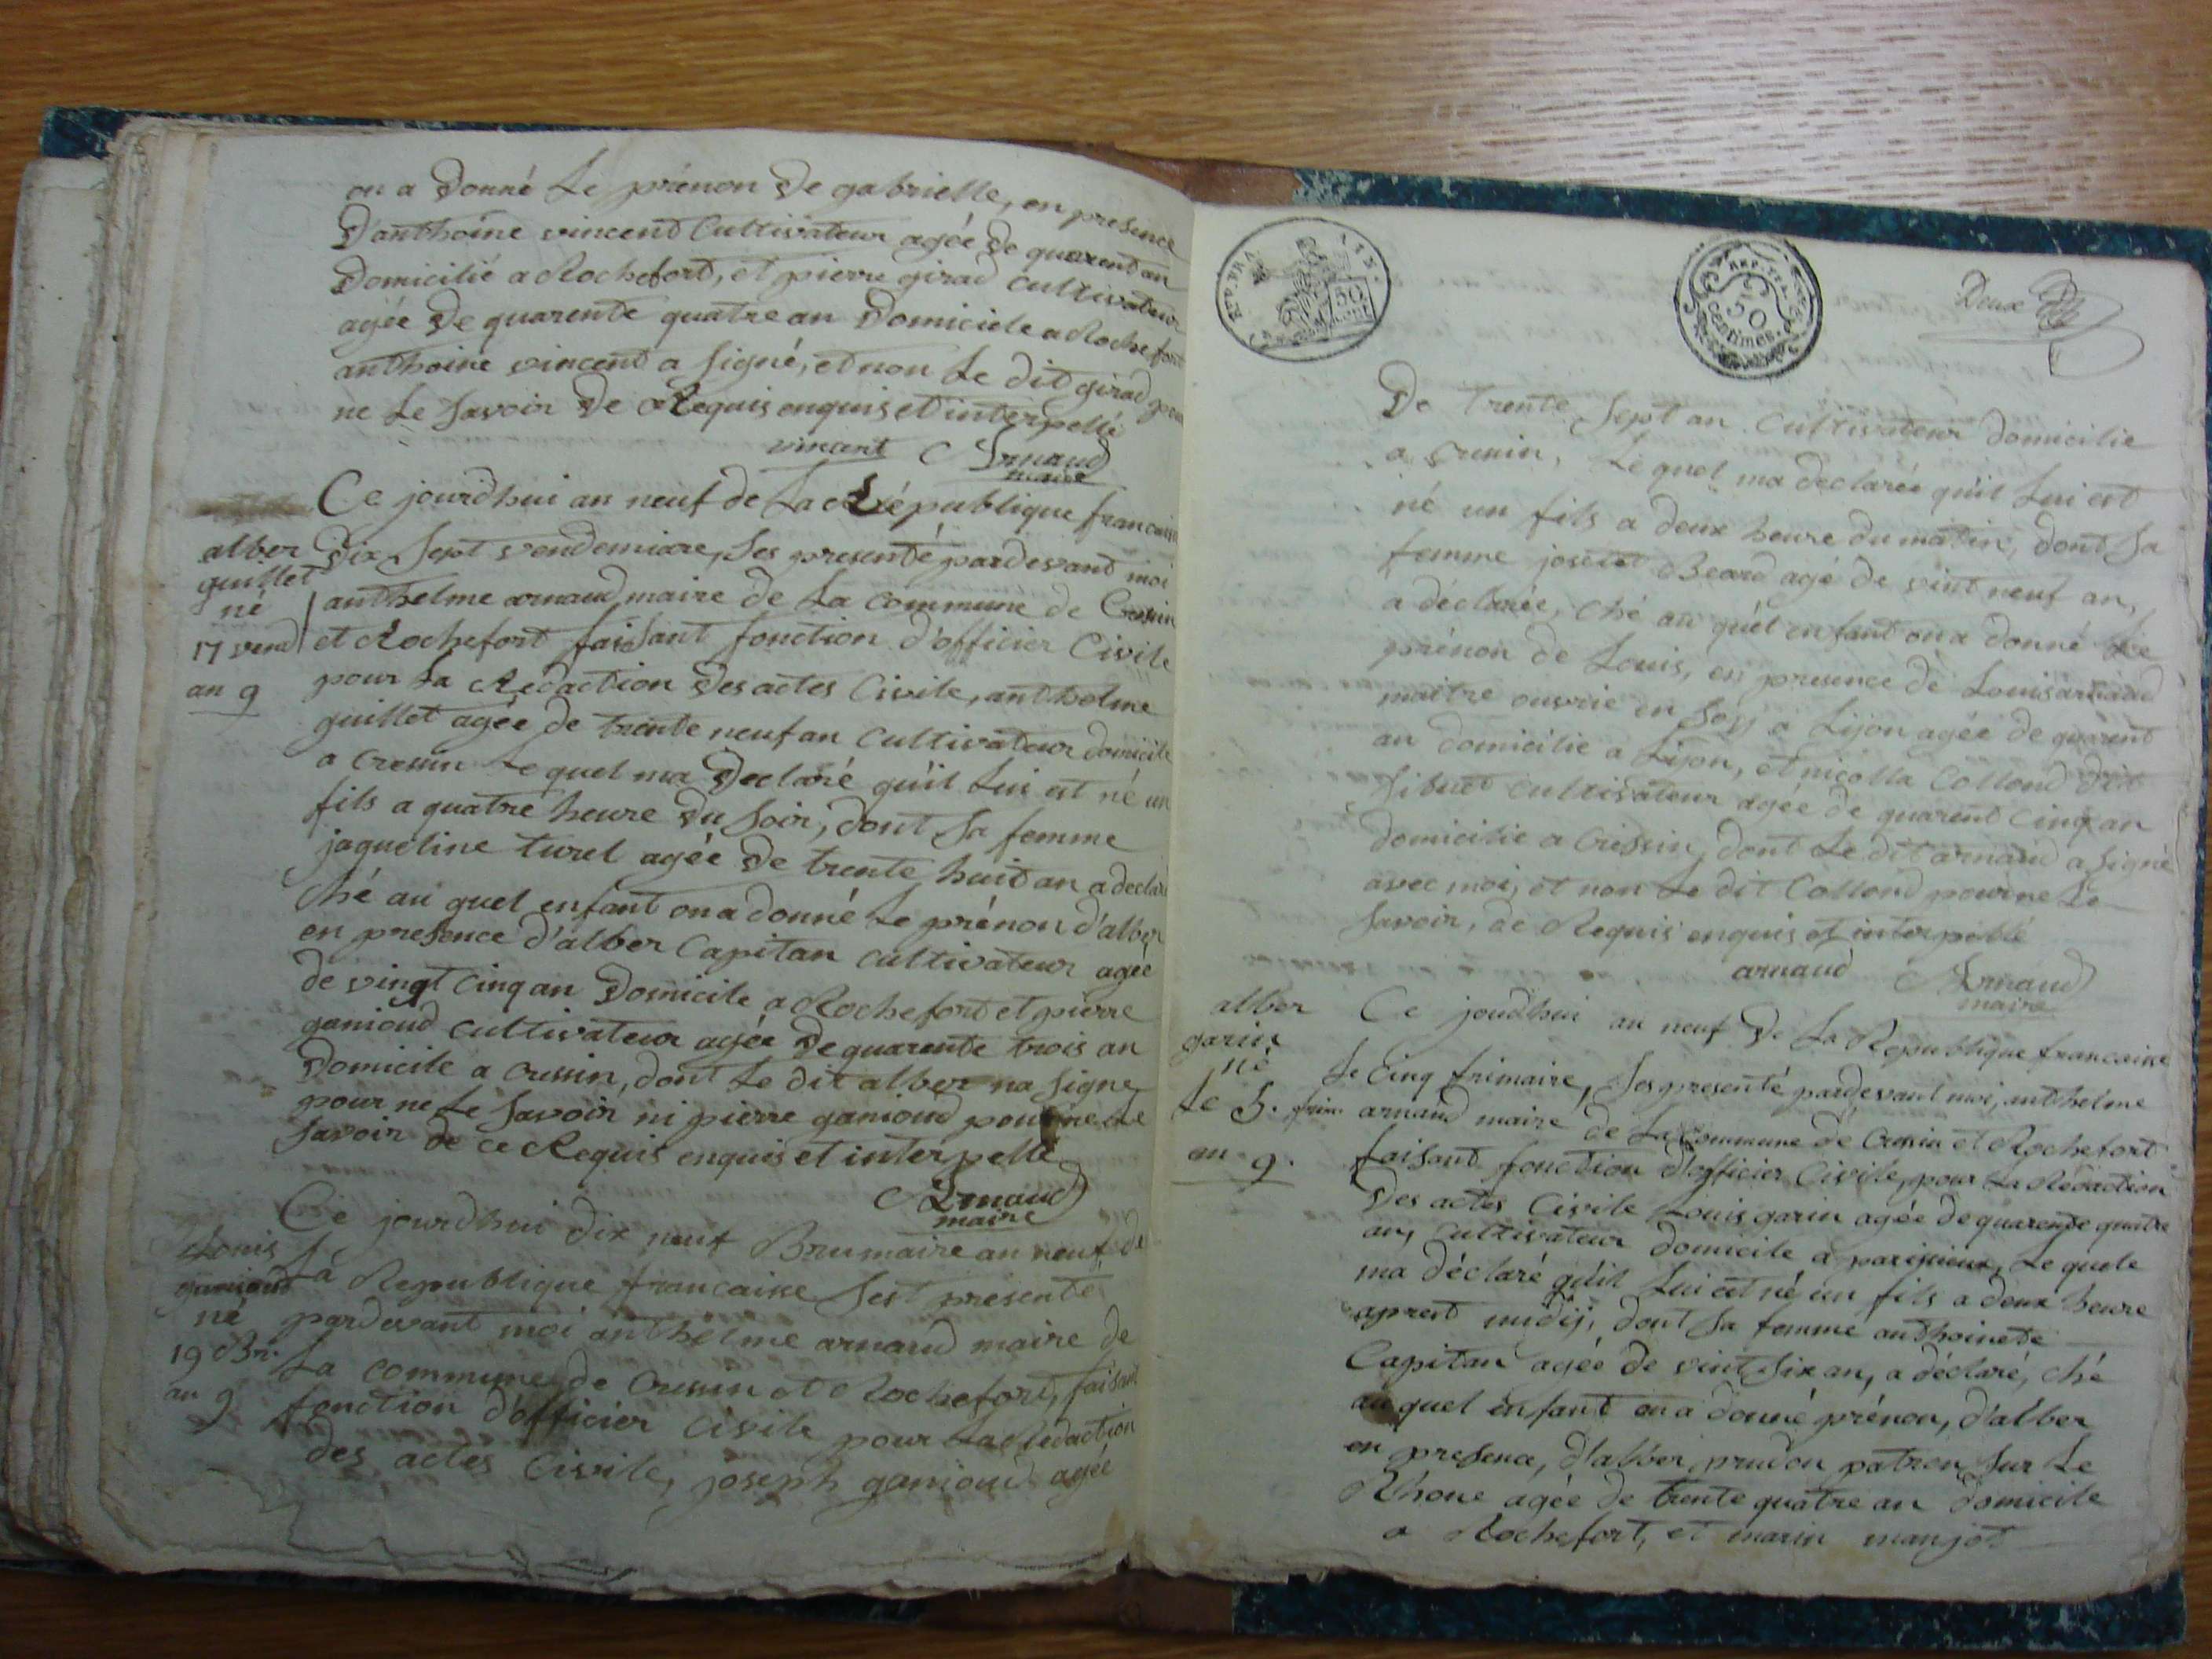 on a Donné Le prénon De gabrielle, en presence
D'anthoine vincent Cultivateur agée De quarent an
Domicilié a Rochefort, et pierre girad cultivateur
agée De quarente quatre an Domiciele a Rochefort
anthoine vincent a signé, et non Le dit girad pour
ne Le savoir De Requis enquis et interpellé
vincent Arnaud
maire
Ce jourd'hui an neuf de La République francaise
alber
guillet
né
17 vend
an 9
Dix sept vendemiare, ses presenté pardevant moi
anthelme arnaud maire de La commune de Cressin
et Rochefort faisant fonction d'officier Civile
pour La Redaction Des actes Civile, anthelme
guillet agée de trente neuf an Cultivateur domicile
a Cressin Le quel ma Declaré qu'il Lui est né un
fils a quatre heure Du soir, dont sa femme
jaqueline turel agée De trente huit an a declaré
ché au quel enfant on a donné Le prénon d'alber
en presence d'alber Capitan cultivateur agée
de vingt Cinq an Domicile a Rochefort et pierre
ganioud cultivateur agée De quarente trois an
Domicile a Cressin, dont Le dit alber na signe
pour ne Le savoir ni pierre ganioud pour ne Le
savoir de ce Requis enquis et interpellé
Arnaud
maire
Ce jourd'hui dix neuf Brumaire an neuf de
Louis
ganioud
né
19 Br.
an 9
La Republique francaise sest presenté
pardevant moi anthelme arnaud maire de
La commune de Cressin et Rochefort, faisant
fonction d'officier Civile pour La Redaction
des actes Civile, joseph ganioud agée
REP. FRA.
50
CENT
REP. FRA.
50
Centimes.
Deux
De trente sept an cultivateur domicilie
a Cressin, Le quel ma declarée quil Lui est
né un fils a deux heure du matin, dont sa
femme josete Beard agé de vint neuf an,
a déclarée, ché au quel enfant on a donné Le
prénon de Louis, en presence de Louis arnaud
maitre ouvrie en a Lijon agée de quarent
an domicilie a Lijon, et nicolla Collond dit
sibuet cultivateur agée de quarent Cinq an
domicilie a Cressin, dont Le dit arnaud a signé
avec moi, et non Le dit Collond pour ne Le
savoir, de Requis enquis et interpellé
arnaud Arnaud
maire
alber
garin
né
Le 5. frim.
an 9.
Ce joudhui an neuf De La Republique francaise
Le Cinq frimaire, ses presenté pardevant moi, anthelme
arnaud maire de La Commune de Cressin et Rochefort
faisant fonction d'officier Civile, pour La Redaction
Des actes Civile Louis garin agée de quarente quatre
an, cultivateur domicile a parissieux, Le quele
ma déclaré qu'il Lui est né un fils a deux heure
aprest midij, dont sa femme anthoinete
Capitan agée de vint six an, a déclaré, ché
au quel enfant on a donné prénon, d'alber
en presence, d'alber prudon patron sur Le
Rhone agée de trente quatre an domicile
a Rochefort, et marin manjot